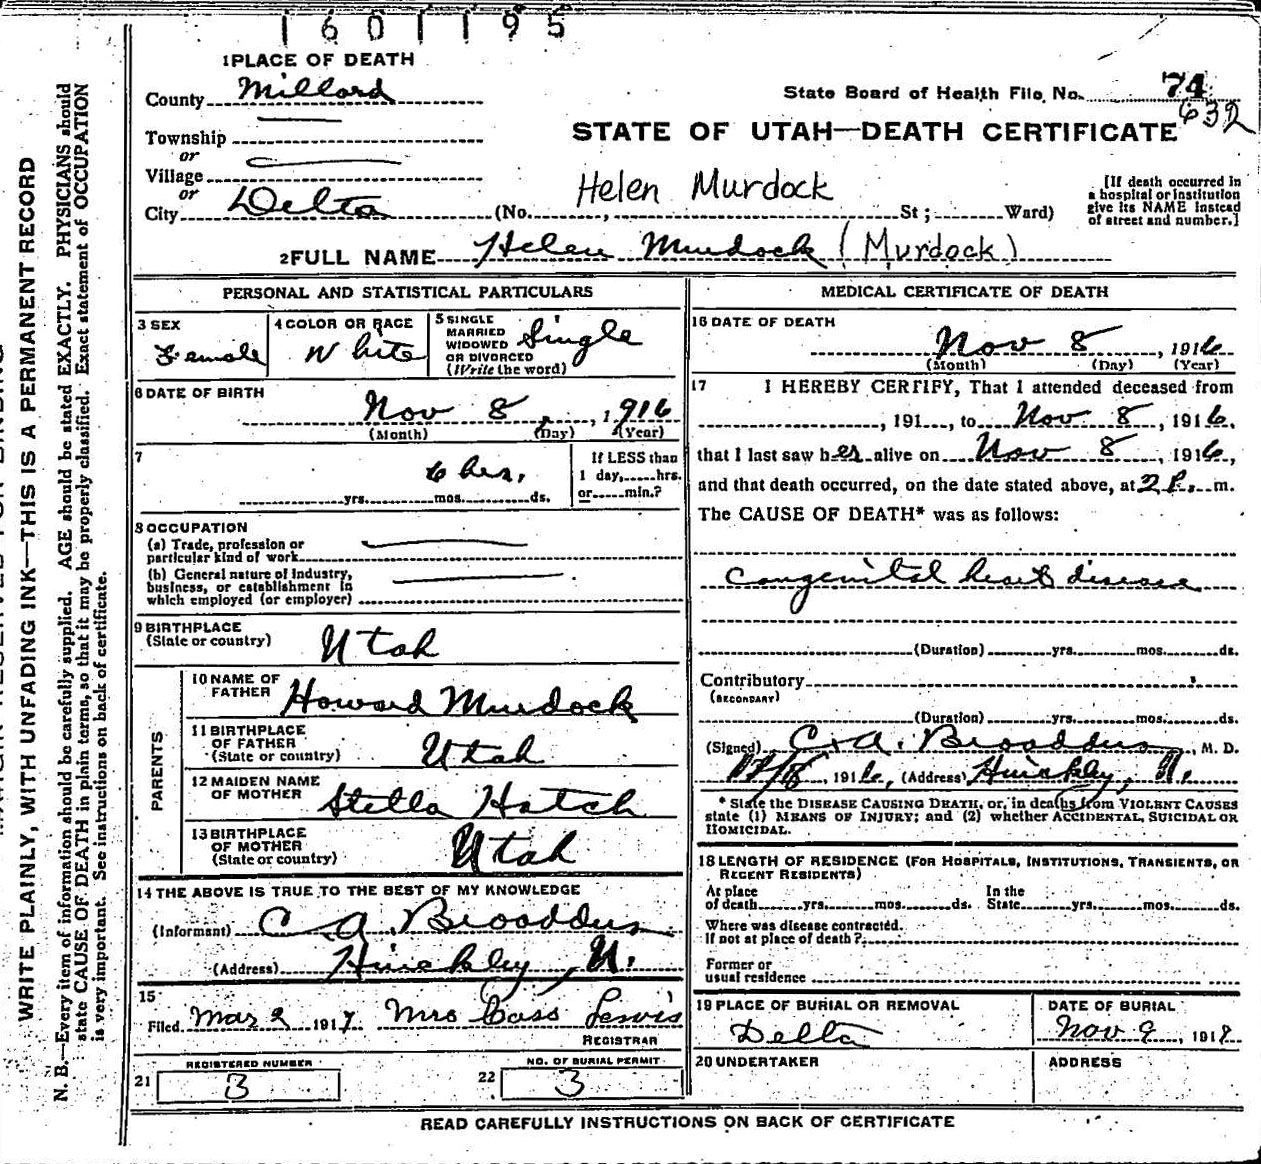 1601195
1 PLACE OF DEATH
County Millard
State Board of Health File No. 74
632
Township
or
Village
or
City Delta
STATE OF UTAH—DEATH CERTIFICATE
Helen Murdock
(No. , St; Ward)
[If death occurred in
a hospital or institution
give its NAME instead
of street and number.]
2 FULL NAME Helen Murdock (Murdock)
PERSONAL AND STATISTICAL PARTICULARS
3 SEX
Female
4 COLOR OR RACE
White
5 SINGLE
MARRIED
WIDOWED
OR DIVORCED
(Write the word)
Single
6 DATE OF BIRTH
Nov 8, 1916
(Month) (Day) (Year)
7
6 hrs.
yrs. mos. ds.
If LESS than
1 day, hrs.
or min.?
8 OCCUPATION
(a) Trade, profession or
particular kind of work
(b) General nature of industry,
business, or establishment in
which employed (or employer)
9 BIRTHPLACE
(State or country)
Utah
PARENTS
10 NAME OF
FATHER
Howard Murdock
11 BIRTHPLACE
OF FATHER
(State or country)
Utah
12 MAIDEN NAME
OF MOTHER
Stella Hatch
13 BIRTHPLACE
OF MOTHER
(State or country)
Utah
14 THE ABOVE IS TRUE TO THE BEST OF MY KNOWLEDGE
(Informant) C. A. Broaddus
(Address) Hinckley, U.
15
Filed Mar 2 1917 Mrs Cass Lewis
REGISTRAR
REGISTERED NUMBER
21 3
NO. OF BURIAL PERMIT
22 3
MEDICAL CERTIFICATE OF DEATH
16 DATE OF DEATH
Nov 8, 1916
(Month) (Day) (Year)
17 I HEREBY CERTIFY, That I attended deceased from
, 191 , to Nov 8, 1916,
that I last saw her alive on Nov 8, 1916,
and that death occurred, on the date stated above, at 2 P. m.
The CAUSE OF DEATH* was as follows:
Congenital heart disease
(Duration) yrs. mos. ds.
Contributory
(SECONDARY)
(Duration) yrs. mos. ds.
(Signed) C. A. Broaddus, M. D.
, 1916, (Address) Hinckley, U.
* State the DISEASE CAUSING DEATH, or, in deaths from VIOLENT CAUSES
state (1) MEANS OF INJURY; and (2) whether ACCIDENTAL, SUICIDAL OR
HOMICIDAL.
18 LENGTH OF RESIDENCE (FOR HOSPITALS, INSTITUTIONS, TRANSIENTS, OR
RECENT RESIDENTS)
At place
of death yrs. mos. ds.
In the
State yrs. mos. ds.
Where was disease contracted.
If not at place of death?
Former or
usual residence
19 PLACE OF BURIAL OR REMOVAL
Delta
DATE OF BURIAL
Nov 9, 191
20 UNDERTAKER
ADDRESS
READ CAREFULLY INSTRUCTIONS ON BACK OF CERTIFICATE
WRITE PLAINLY, WITH UNFADING INK—THIS IS A PERMANENT RECORD
N. B.—Every item of information should be carefully supplied. AGE should be stated EXACTLY. PHYSICIANS should
state CAUSE OF DEATH in plain terms, so that it may be properly classified. Exact statement of OCCUPATION
is very important. See instructions on back of certificate.